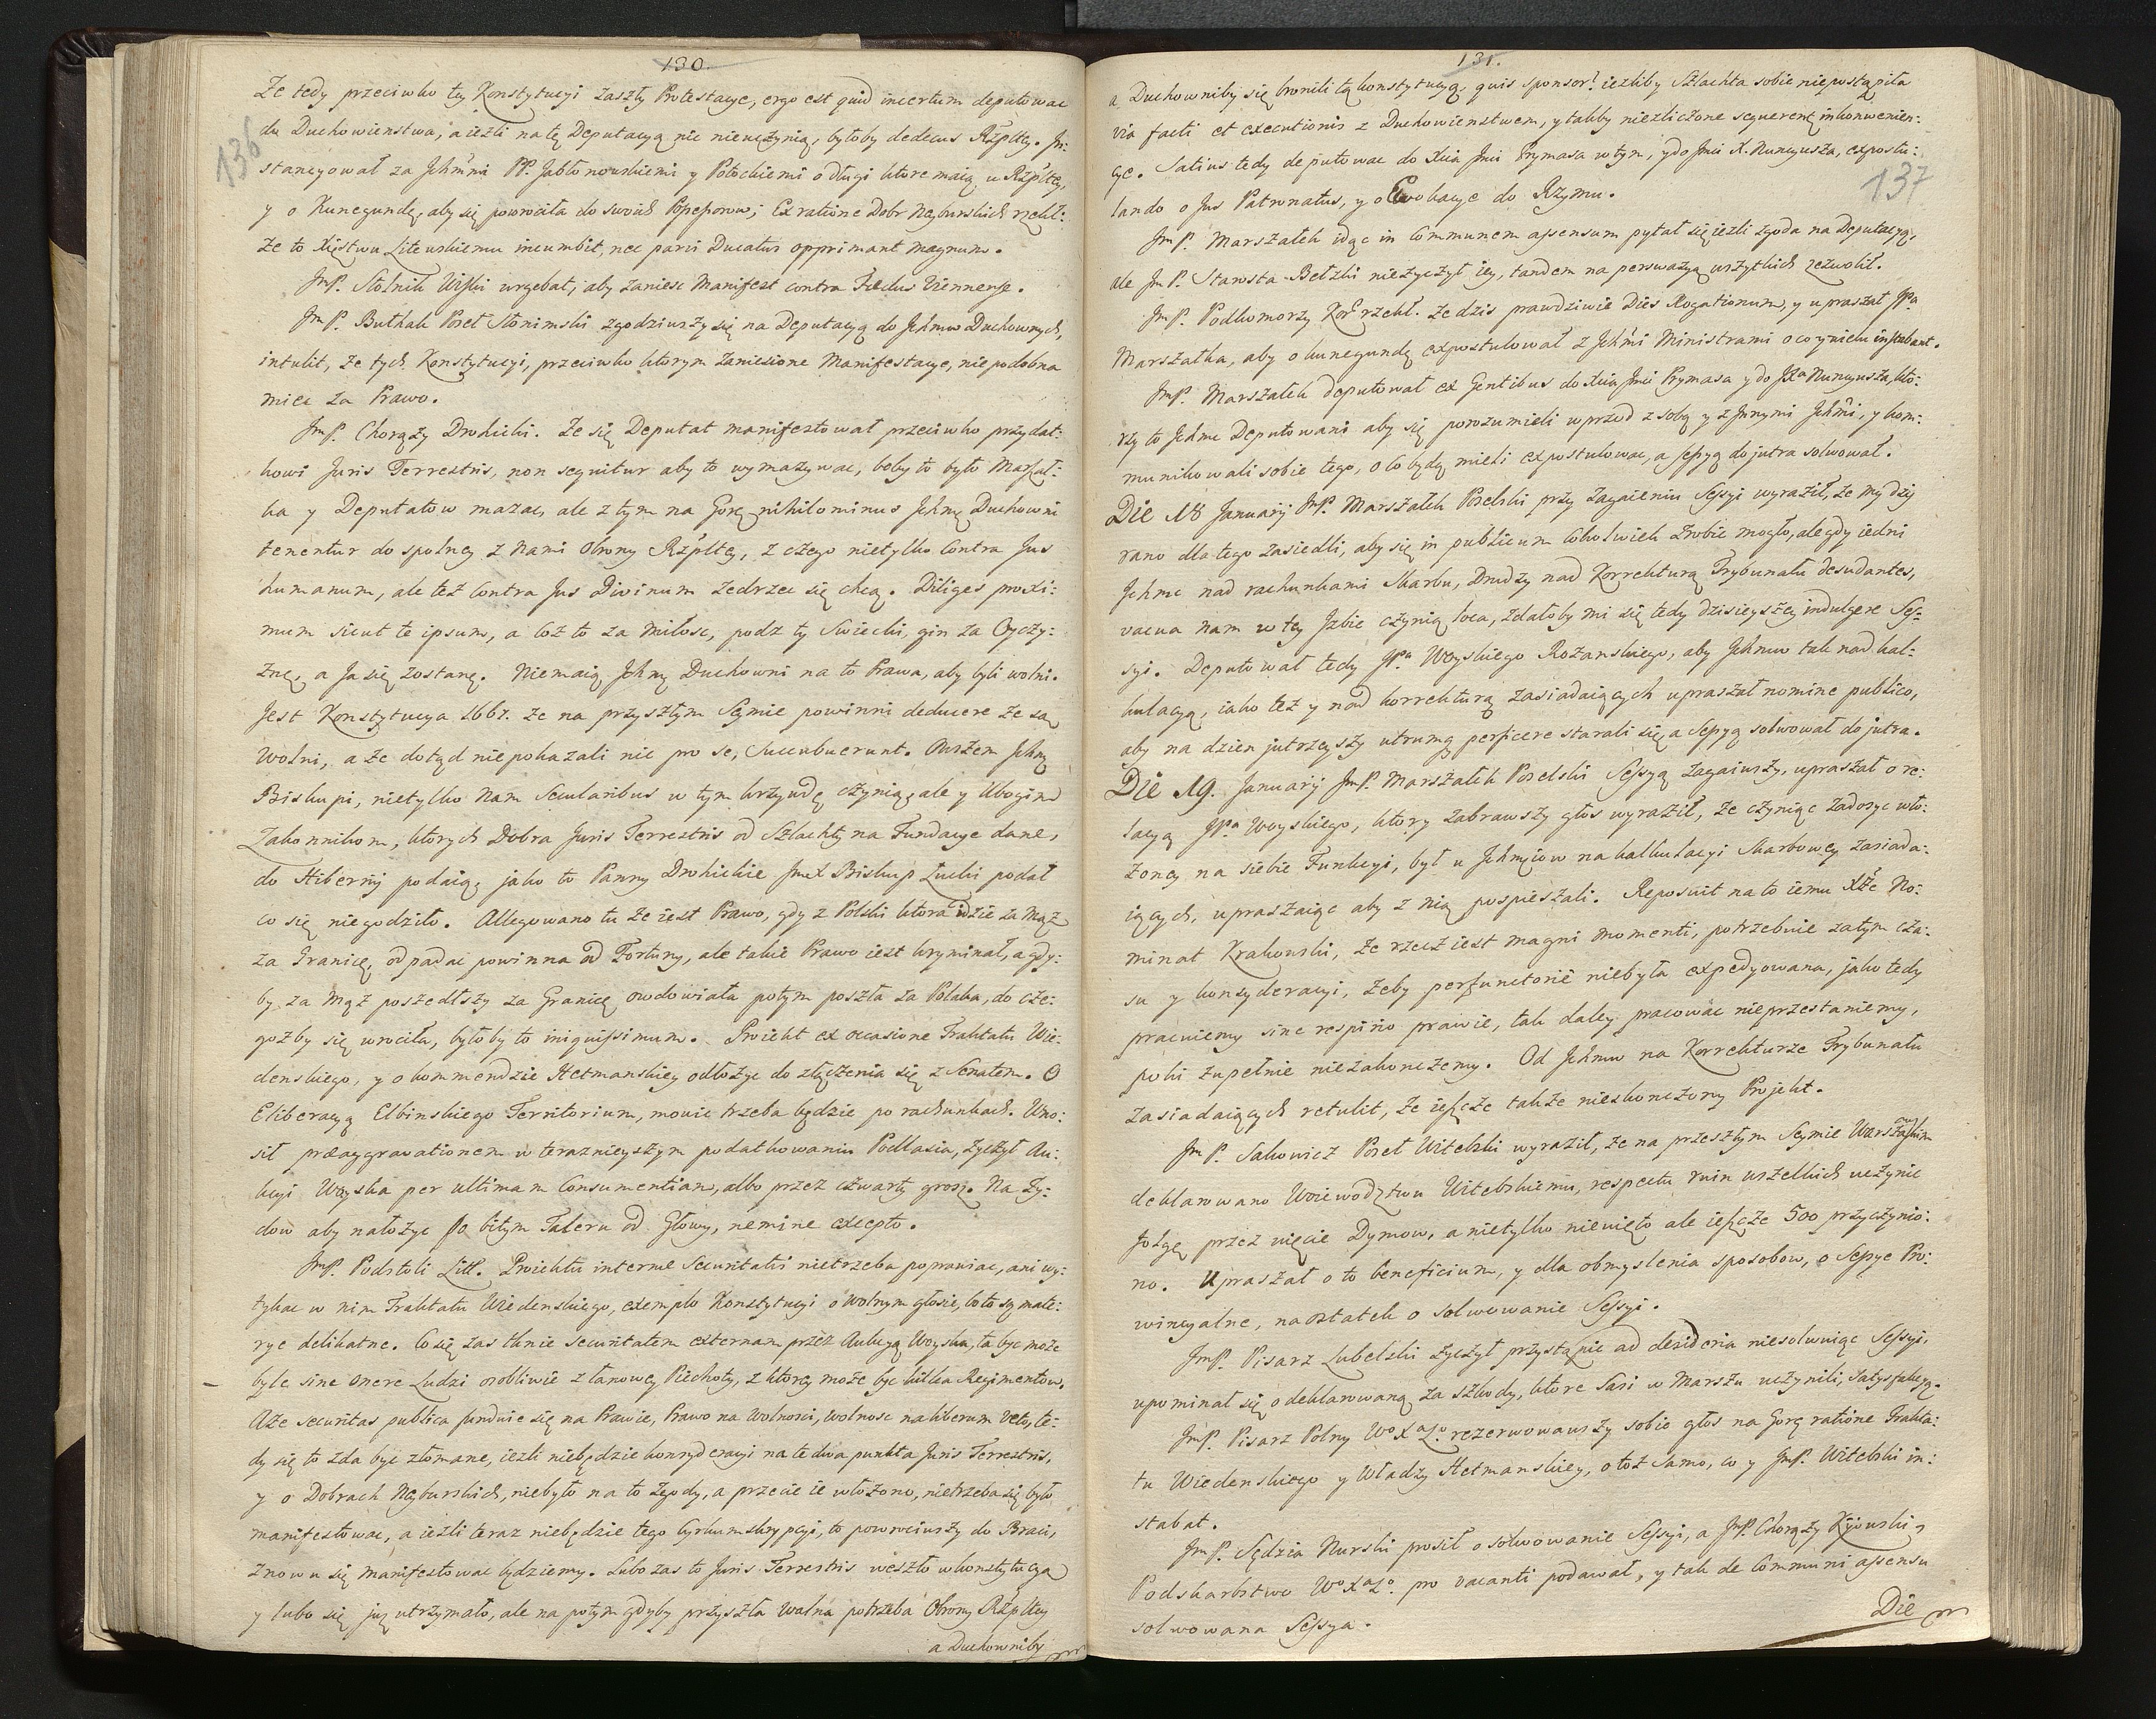 130.
136
Ze tedy przeciwko tey Konstytucyi zaszły Protestacye, ergo est quid incertum deputowac
do Duchowienstwa, a iezli na tę Deputacyą nic nieuczynią, byłoby dedecus Rzpltey. In:
stancyował za Jchmmi PP. Jabłonowskiemi y Potockiemi o długi ktore maią u Rzpltey,
y o Kunegundę, aby się powrociła do swoich Possessorow; Ex ratione Dobr Neyburskich rzekł:
że to Xięstwu Litewskiemu incumbit, nec parvi Ducatus opprimant magnum.
JmP. Stolnik Wiski urgebat, aby zaniesc Manifest contra Fœdus Viennense.
JmP. Buthak Poseł Słonimski zgodziwszy się na Deputacyą do Jchmw Duchownych,
intulit, że tych Konstytucyi, przeciwko ktorym zaniesione Manifestacye, nie podobna
miec za Prawo.
JmP. Chorąży Drohicki. Że się Deputat manifestował przeciwko przydat:
kowi Juris Terrestris, non sequitur aby to wymazywac, boby to było Marszał:
ka y Deputatow mazac, ale z tym na Gorę nihilominus Jchmę Duchowni
tenentur do spolney z nami Obrony Rzpltey, z czego nietylko contra Jus
humanum, ale też contra Jus Divinum zedrzec się chcą. Diliges proxi:
mum sicut te ipsum, a coż to za miłosc, podz ty Swiecki, gin za Oyczy:
znę, a Ja się zostanę. Niemaią Jchmę Duchowni na to Prawa, aby byli wolni.
Jest Konstytucya 1667. że na przyszłym Seymie powinni deducere że są
Wolni, a że dotąd niepokazali nic pro se, succubuerunt. Owszem Jchmę
Biskupi, nietylko nam secularibus w tym krzywdę czynią, ale y Ubogim
Zakonnikom, ktorych Dobra Juris Terrestris od Szlachty na Fundacye dane,
do Hiberny podaią, jako to Panny Drohickie JmX Biskup Łucki podał
co się niegodziło. Allegowano tu że iest Prawo, gdy z Polski ktora idzie za mąż
za Granicę, odpadać powinna od Fortuny, ale takie Prawo iest kryminał, a gdy:
by za Mąż poszedłszy za Granicę owdowiała potym poszła za Polaka, do cze:
gożby się wrociła, byłoby to iniquissimum. Proiekt ex occasione Traktatu Wie:
denskiego, y o kommendzie Hetmanskiey odłożyc do złączenia się z Senatem. O
Eliberacyą Elbinskiego Territorium, mowic trzeba będzie po rachunkach. Wno:
sił præaggravationem w teraznieyszym podatkowaniu Podlasia, życzył Au:
kcyi Woyska per ultimam Consumentiam, albo przez czwarty grosz. Na Ży:
dow aby nałożyc po bitym Taleru od Głowy, nemine excepto.
JmP. Podstoli Litt. Proiektu internæ Securitatis nietrzeba poprawiac, ani wy:
tykac w nim Traktatu Wiedenskiego, exemplo Konstytucyi o wolnym głosie, bo to są mate:
rye delikatne. Co się zas tknie securitatem externam przez Aukcyą Woyska, ta byc może
byle sine onere Ludzi osobliwie z łanowey Piechoty, z ktorey może byc kilka Regimentow.
Aże securitas publica funduie się na Prawie, Prawo na Wolnosci, wolnosc na liberum veto, te:
dy się to zda byc złomane, iezli niebędzie konsyderacyi na te dwa punkta Juris Terrestris,
y o Dobrach Neyburskich, niebyło na to zgody, a przecie ie włożono, nietrzeba się było
manifestowac, a iezli teraz niebędzie tego cyrkumskrypcyi, to powrociwszy do Braci,
znowu się manifestowac będziemy. Lubo zas to Juris Terrestris weszło w konstytucyą
y lubo się już utrzymało, ale na potym gdyby przyszła walna potrzeba Obrony Rzpltey
a Duchowniby
131.
137
a Duchowniby się bronili tą konstytucyą, quis sponsor? iezliby Szlachta sobie niepostąpiła
via facti et executionis z Duchowienstwem, y takby niezliczone sequerent inkonwenien:
cye. Satius tedy deputowac do Xcia Jmci Prymasa w tym, y do Jmci X. Nuncyusza, expostu:
lando o Jus Patronatus, y o Ewokacye do Rzymu.
JmP. Marszałek idąc in Communem assensum pytał się iezli zgoda na Deputacyą,
ale JmP. Starosta Bełzki nieżyczył iey, tandem na perswazyą wszytkich zezwolił.
JmP. Podkomorzy Kor. rzekł. że dzis prawdziwie Dies Rogationum, y upraszał JPa
Marszałka, aby o kunegundę expostulował z Jchmi Ministrami o co y nieku instabant.
JmP. Marszałek deputował ex Gentibus do Xcia Jmci Prymasa y do JXa Nuncyusza, kto:
rzy to Jchmc Deputowani aby się porozumieli wprzod z sobą y z Jnnymi Jchmi, y kom:
munikowali sobie tego, o co będą mieli expostulowac, a sessyą do jutra solwował.
Die 18 January JmP. Marszałek Poselski przy zagaieniu Sessyi wyraził, że my dziś
rano dla tego zasiedli, aby się in publicum cokolwiek zrobic mogło, ale gdy iedni
Jchmc nad rachunkami Skarbu, Drudzy nad Korrekturą Trybunału desudantes,
vacua nam w tey Jzbie czynią loca, zdałoby mi się tedy dzisieyszey indulgere Ses:
syi. Deputował tedy JPa Woyskiego Rozanskiego, aby Jchmw tak nad kal:
kulacyą, iako też y nad korrekturą zasiadaiących upraszał nomine publico,
aby na dzien jutrzeyszy utrumq perficere starali się a Sessyą solwował do jutra.
Die 19. January JmP. Marszałek Poselski Sessyą zagaiwszy, upraszał o re:
lacyą JPa Woyskiego, ktory zabrawszy głos wyraził, że czyniąc zadosyc wło:
żoney na siebie Funkcyi, był u Jchmciow na kalkulacyi Skarbowey zasiada:
iących, upraszaiąc aby z nią pospieszali. Reposuit na to iemu Xże No:
minat Krakowski, że rzecz iest magni momenti, potrzebuie zatym cza:
su y konsyderacyi, żeby perfunctorie niebyła expedyowana, jako tedy
pracuiemy sine respirio prawie, tak daley pracowac nieprzestaniemy,
poki zupełnie niezakonczemy. Od Jchmw na Korrekturze Trybunału
zasiadaiących retulit, że ieszcze także nieskonczony Projekt.
JmP. Sakowicz Poseł Witebski wyraził, że na przeszłym Seymie Warszawskim
deklarowano Woiewodztwu Witebskiemu, respectu ruin wszelkich uczynic
folgę przez uięcie Dymow, a nietylko nieuięto ale ieszcze 500 przyczynio:
no. Upraszał o to beneficium, y dla obmyslenia sposobow, o Sessye Pro:
wincyalne, na ostatek o solwowanie Sessyi.
JmP. Pisarz Lubelski życzył przystąpic ad desideria niesolwuiąc Sessyi,
upominał się o deklarowaną za szkody, ktore Sasi w Marszu uczynili, satysfakcyą.
JmP. Pisarz Polny WoXaLo. rezerwowawszy sobie głos na Gorę ratione Trakta:
tu Wiedenskiego y Władzy Hetmanskiey, o toż samo, co y JmP. Witebski in:
stabat.
JmP. Sędzia Nurski prosił o solwowanie Sessyi, a JmP. Chorąży Kijowski,
Podskarbstwo WoXaLo. pro vacanti podawał, y tak de Communi assensu
solwowana Sessya.
Die